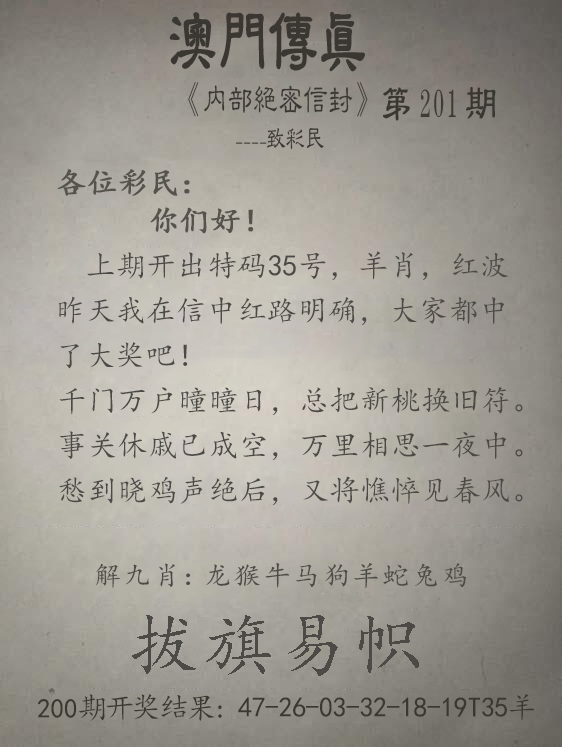 澳門傳眞
《内部絕密信封》第201期
----致彩民
各位彩民：
你们好！
上期开出特码35号，羊肖，红波
昨天我在信中红路明确，大家都中
了大奖吧！
千门万户曈曈日，总把新桃换旧符。
事关休戚已成空，万里相思一夜中。
愁到晓鸡声绝后，又将憔悴见春风。
解九肖：龙猴牛马狗羊蛇兔鸡
拔旗易帜
200期开奖结果：47-26-03-32-18-19T35羊